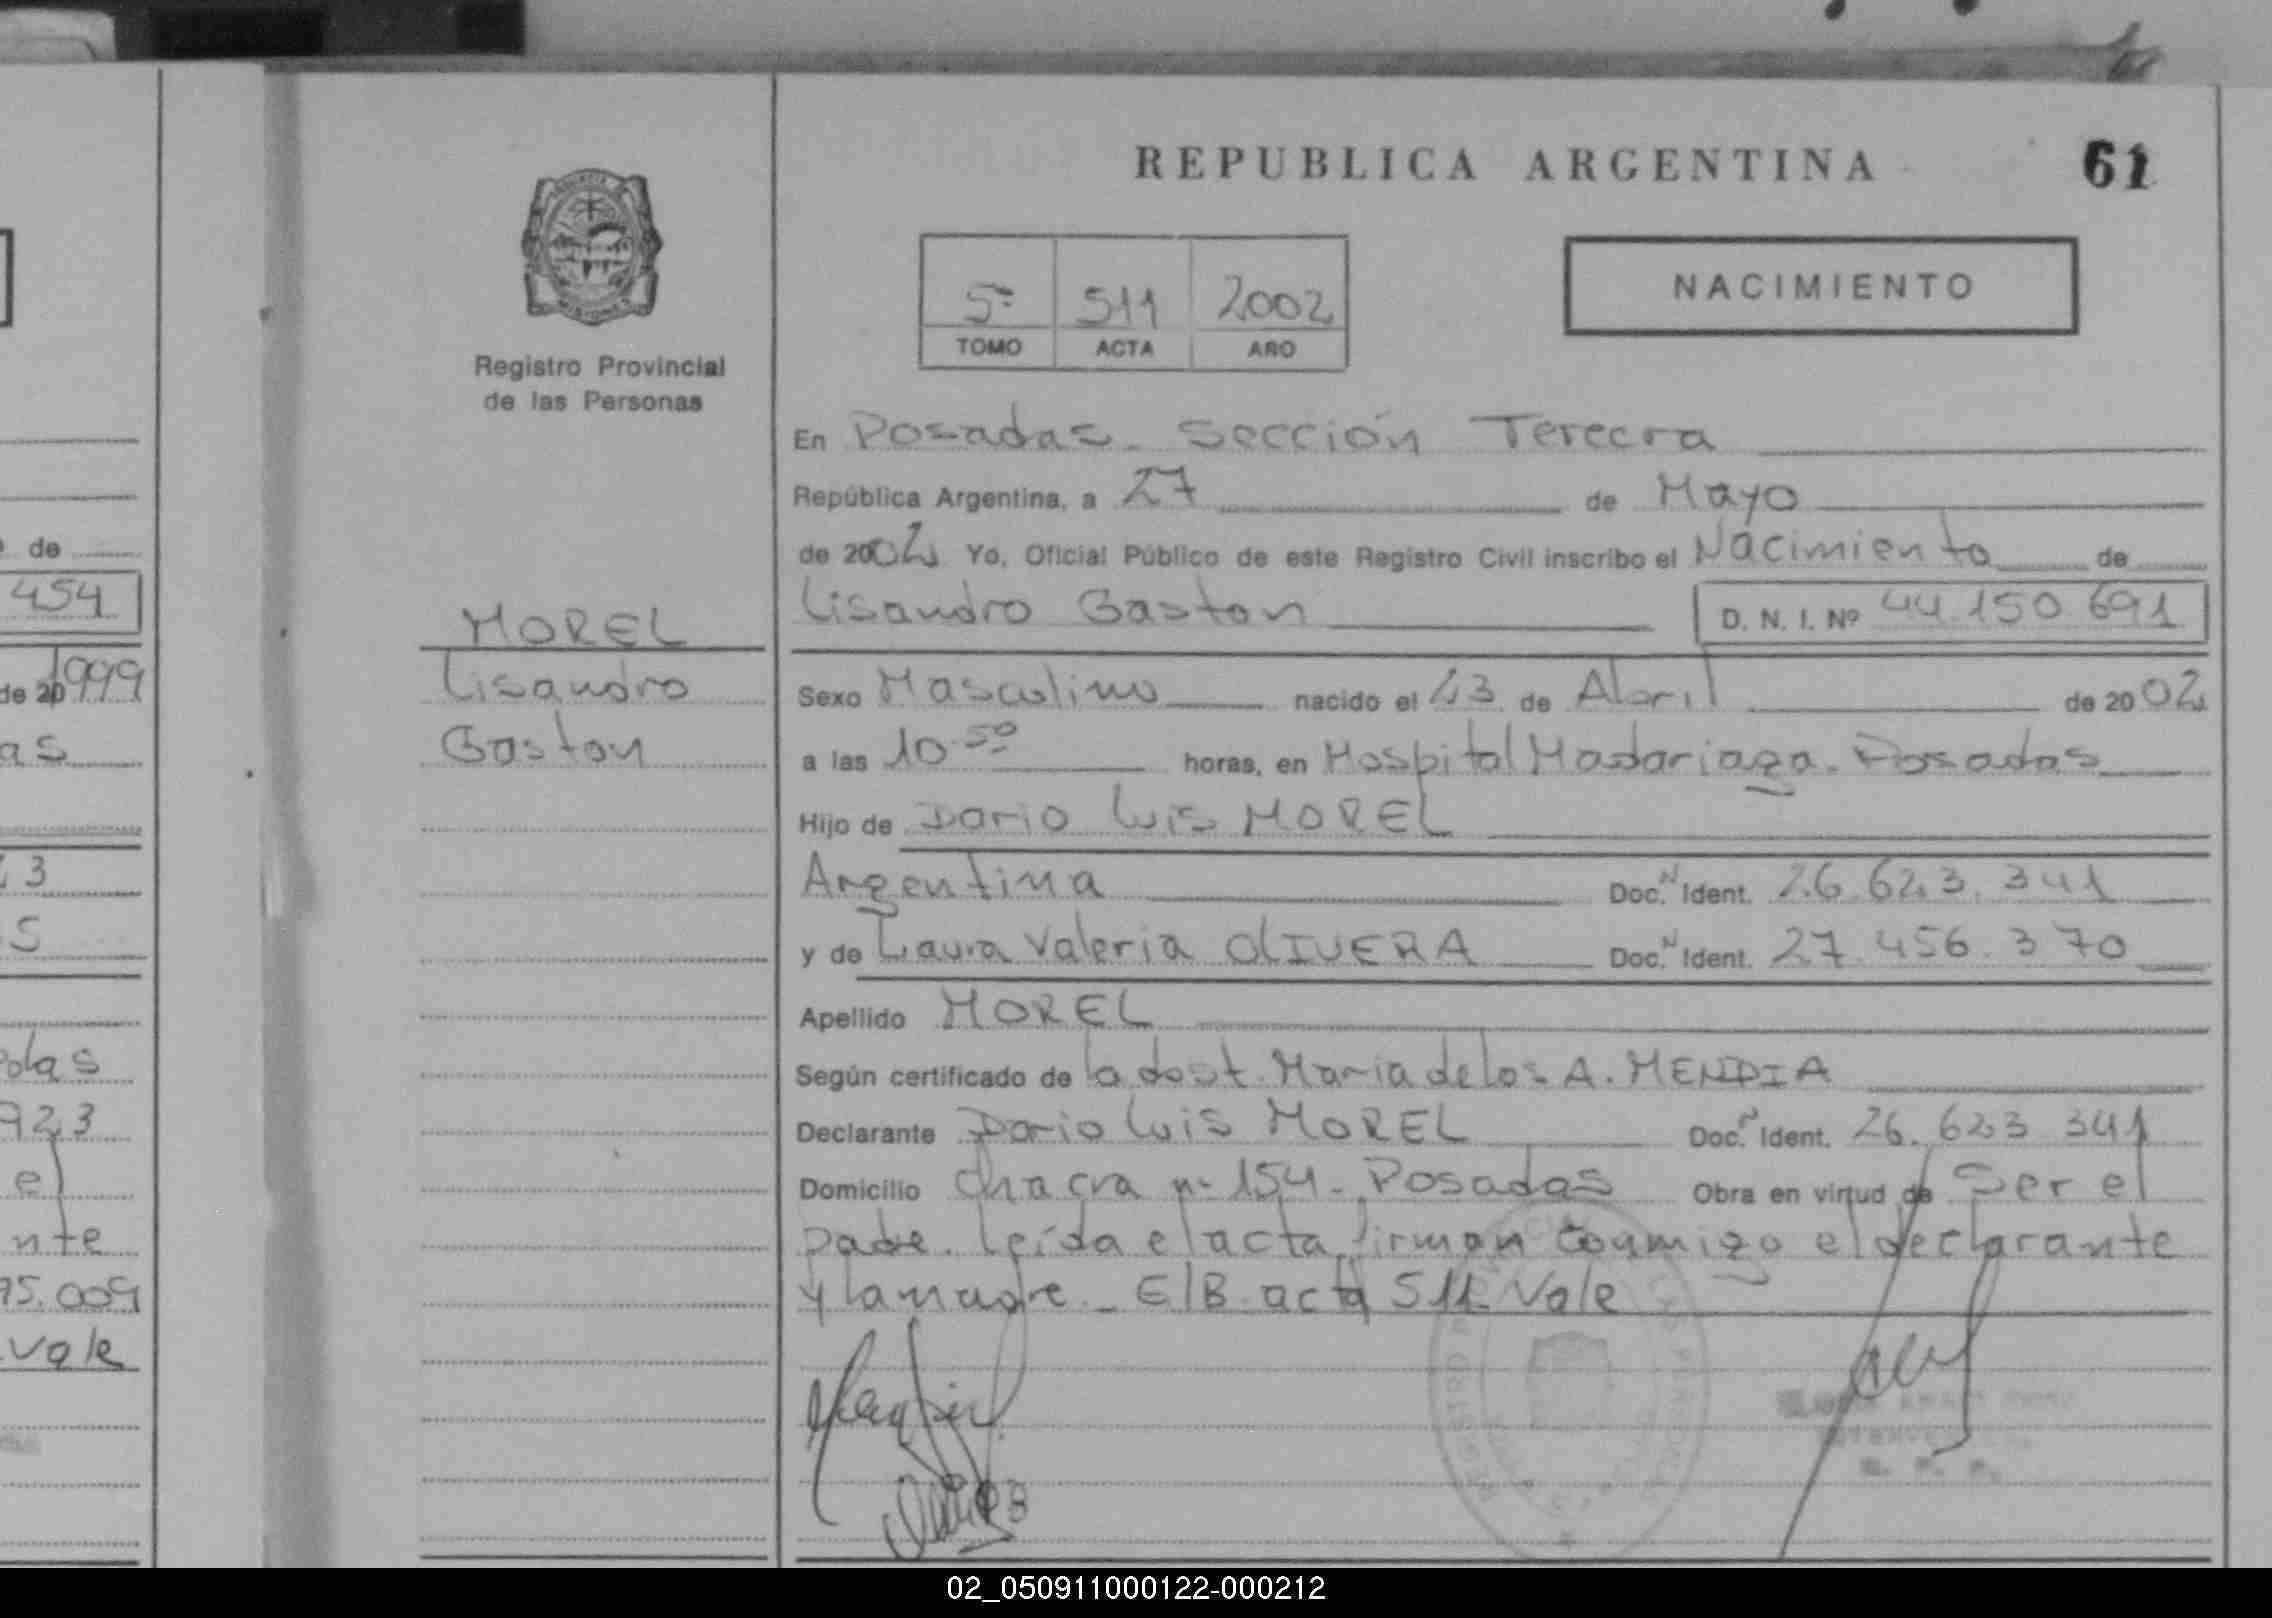 REPUBLICA ARGENTINA
61
5º 511 2002
TOMO ACTA AÑO
NACIMIENTO
Registro Provincial
de las Personas
En Posadas - Sección Terecra
República Argentina, a 27 de Mayo
de 2002 Yo, Oficial Público de este Registro Civil inscribo el Nacimiento de
Lisandro Gaston D. N. I. Nº 44.150.691
MOREL
Lisandro
Gaston
Sexo Masculino nacido el 23 de Abril de 2002
a las 10.50 horas, en Hospital Madariaga. Posadas
Hijo de Dario Luis MOREL
Argentina Doc. N Ident. 26.623.341
y de Laura Valeria OLIVERA Doc. N Ident. 27.456.370
Apellido MOREL
Según certificado de la dost. Maria de los A. MENDIA
Declarante Dario Luis MOREL Doc. N Ident. 26.623 341
Domicilio Chacra nº 154 - Posadas Obra en virtud de Ser el
padre. Leída el acta, firman conmigo el declarante
y la madre - E/B. acta 511 Vale
454
de
de 20 1999
as
23
S
923
el
nte
95.009
vale
02_050911000122-000212